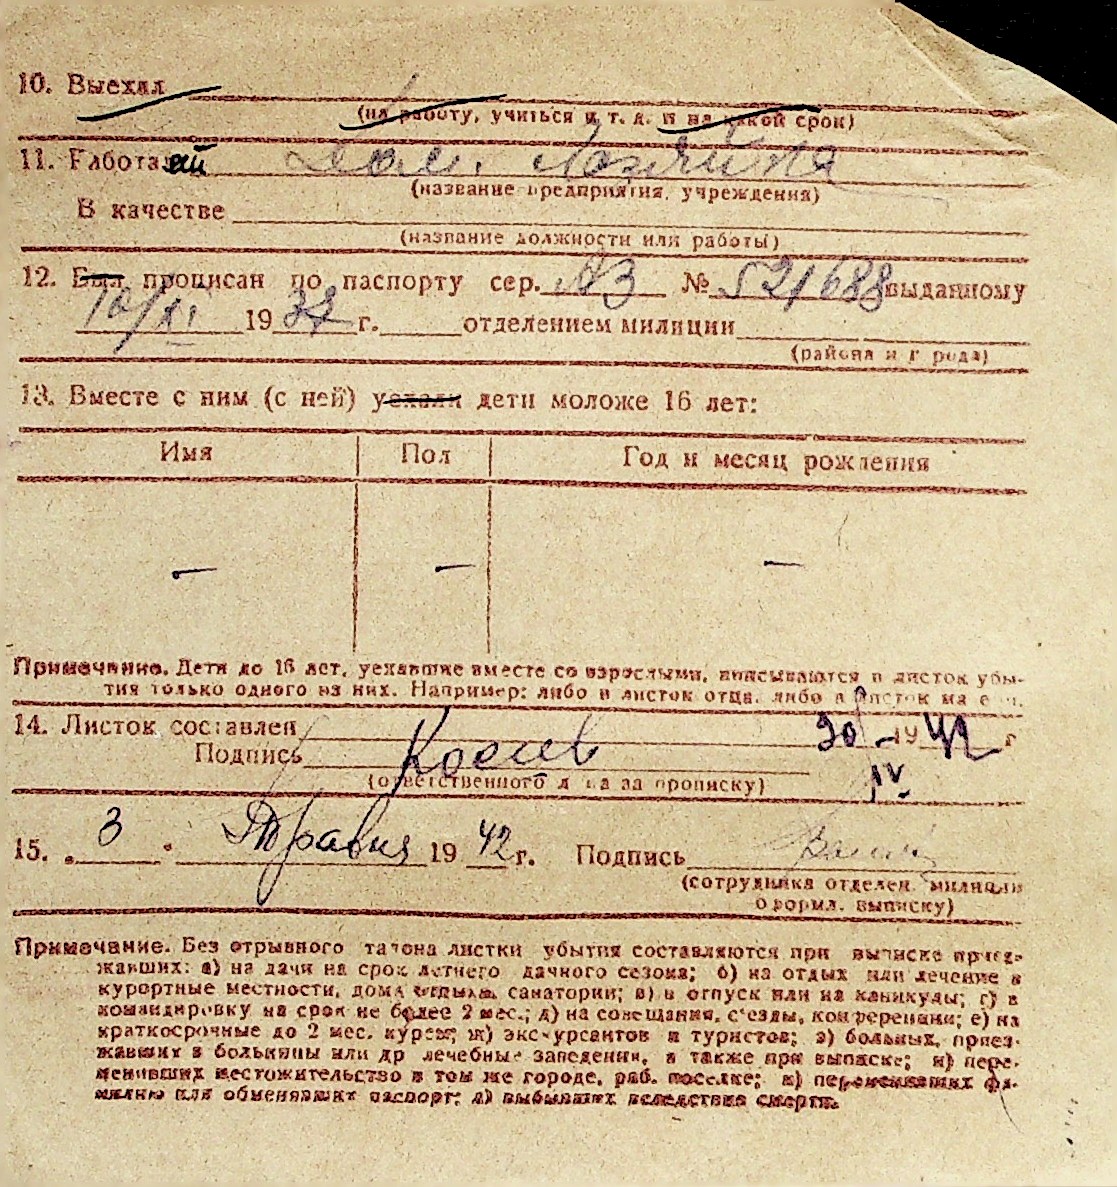 10. Выехал
(на работу, учиться и т. д. и на какой срок)
11. Работа Дом. Хозяйка
(название предприятия, учреждения)
В качестве
(название должности или работы)
12. Был прописан по паспорту сер. АЗ № 521688 выданному
10/XI 1938 г. отделением милиции
(района и города)
13. Вместе с ним (с ней) уехали дети моложе 16 лет:
Имя Пол Год и месяц рождения
— — —
Примечание. Дети до 16 лет, уехавшие вместе со взрослыми, вписываются в листок убы-
тия только одного из них. Например: либо в листок отца, либо в листок ма
14. Листок составлен 30/IV 1942 г
Подпись
(ответственного лица за прописку)
15. „3“ Травня 1942 г. Подпись
(сотрудника отделен. милиции
оформл. выписку)
Примечание. Без отрывного талона листки убытия составляются при выписке приез-
жавших: а) на дачи на срок летнего дачного сезона; б) на отдых или лечение в
курортные местности, дома отдыха, санатории; в) в отпуск или на каникулы; г) в
командировку на срок не более 2 мес.; д) на совещания, съезды, конференции; е) на
краткосрочные до 2 мес. курсы; ж) экскурсантов и туристов; з) больных, приез-
жавших в больницы или др лечебные заведения, а также при выписке; и) пере-
менивших местожительство в том же городе, раб. поселке; к) переменивших фа-
милию или обменявших паспорт; л) выбывших вследствие смерти.